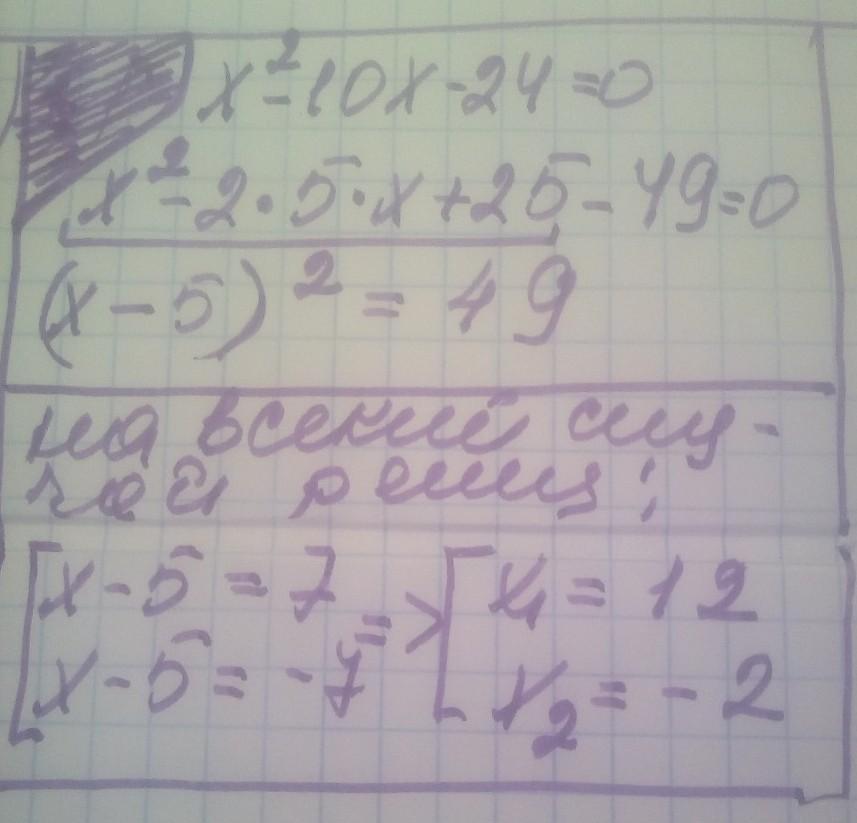 x²-10x-24=0
x²-2·5·x+25-49=0
(x-5)²=49
на всякий слу-
чай решу:
[x-5=7
x-5=-7 => [x₁=12
x₂=-2